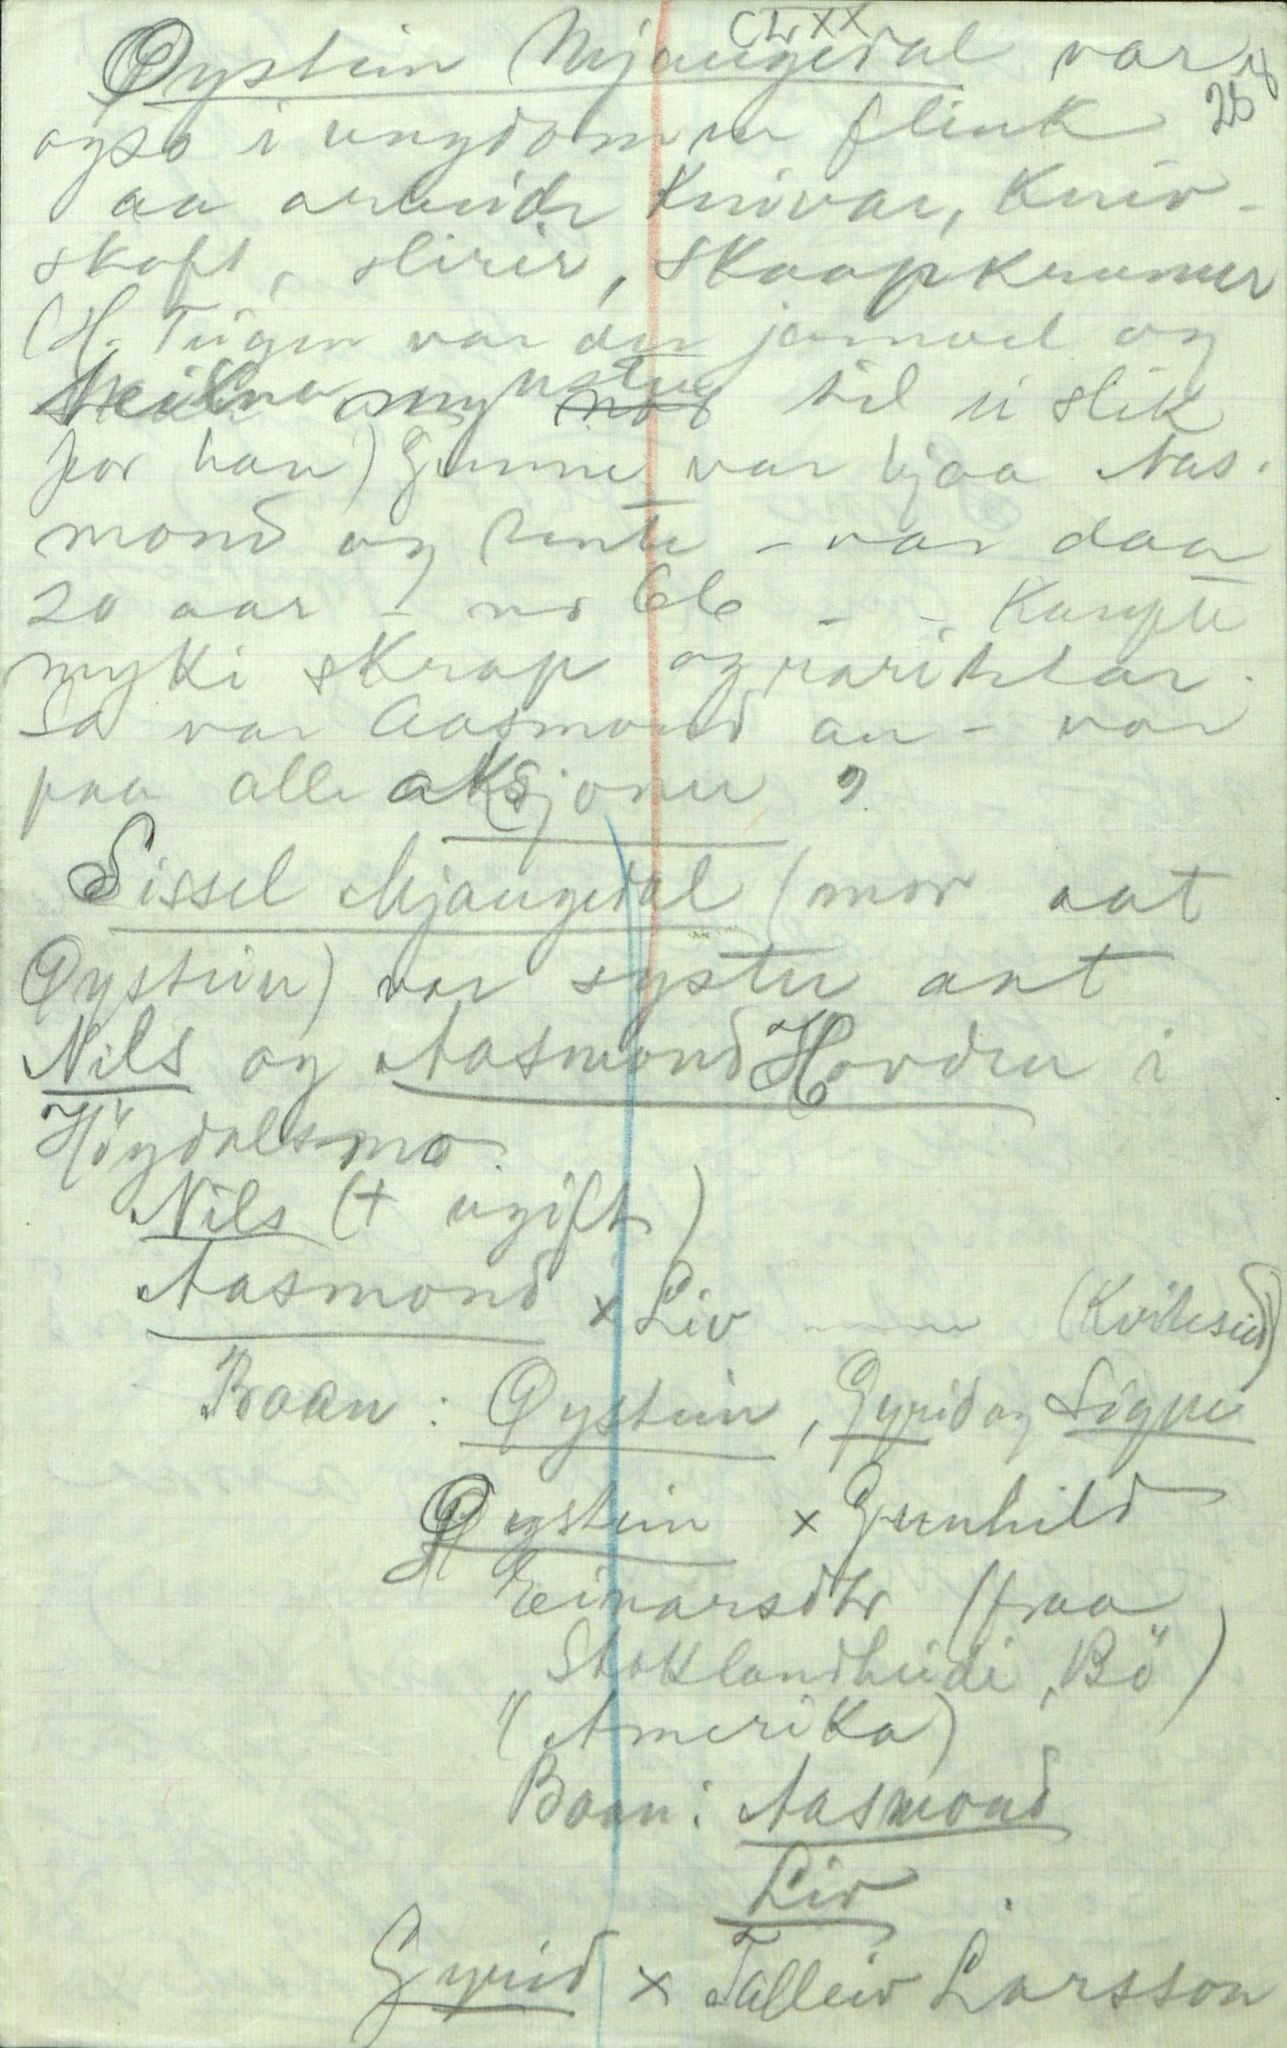 CLXX
Øystein Mjaugedal var
25
ogso i ungdomen flink
aa arbeide Knivar, Kniv-
skaft, slirir, Skaapkrumer
(H. Teigen var der jamvel og
til ei slik
for han) Gunne var hjaa Aas-
mond og tente - var daa
20 aar - no 66 - - Kaupte
myki skrap og raritetar.
So var Aasmond au - var
paa alle aksjoner ?
Sissel Mjaugedal (mor aat
Øystein) var syster aat
Nils og Aasmond Hovden i
Höydalsmo.
Nils (+ ugift)
Aasmond x Liv (Kviteseid)
Baan: Øystein, Gyrid og Signe
Øystein x Gunhild
Einarsdtr (fraa
Stoklandheidi, Bö)
(Amerika)
Baan: Aasmond
Liv
Gyrid x Talleiv Larsson